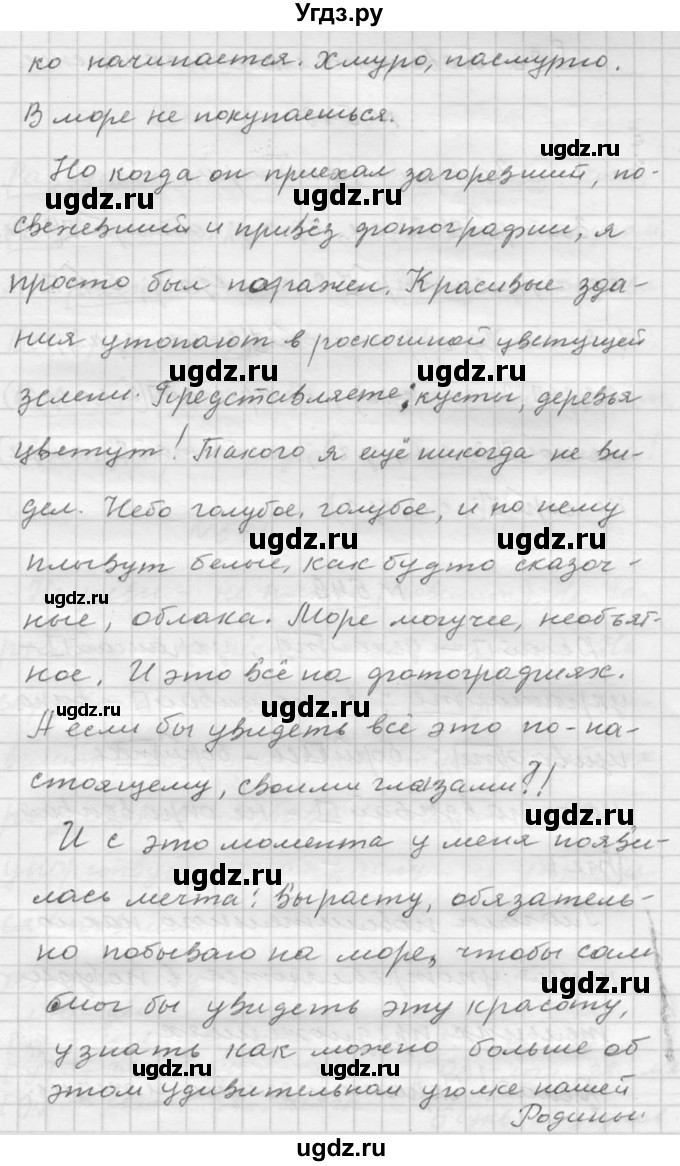 Угдз.ру
ко начинается. Хмуро, пасмурно.
В море не покупаешься.
Но когда он приехал загоревший, по-
ugdz.ru
ugdz.ru
свежевший и привёз фотографии, я
просто был поражен. Красивые зда-
ния утопают в роскошной цветущей
ugdz.ru
ugdz.ru
зелени. Представляете: кусты, деревья
цветут! Такого я ещё никогда не ви-
дел. Небо голубое, голубое, и по нему
ugdz.ru
ugdz.ru
плывут белые, как будто сказоч-
ugdz.ru
ные, облака. Море могучее, необъят-
ное. И это всё на фотографиях.
ugdz.ru
ugdz.ru
А если бы увидеть всё это по-на-
стоящему, своими глазами?!
ugdz.ru
И с это момента у меня появи-
ugdz.ru
лась мечта: Вырасту, обязатель-
ugdz.ru
но побываю на море, чтобы сам
смог бы увидеть эту красоту,
узнать как можно больше об
ugdz.ru
ugdz.ru
этом удивительном уголке нашей
Родины.
ugdz.ru